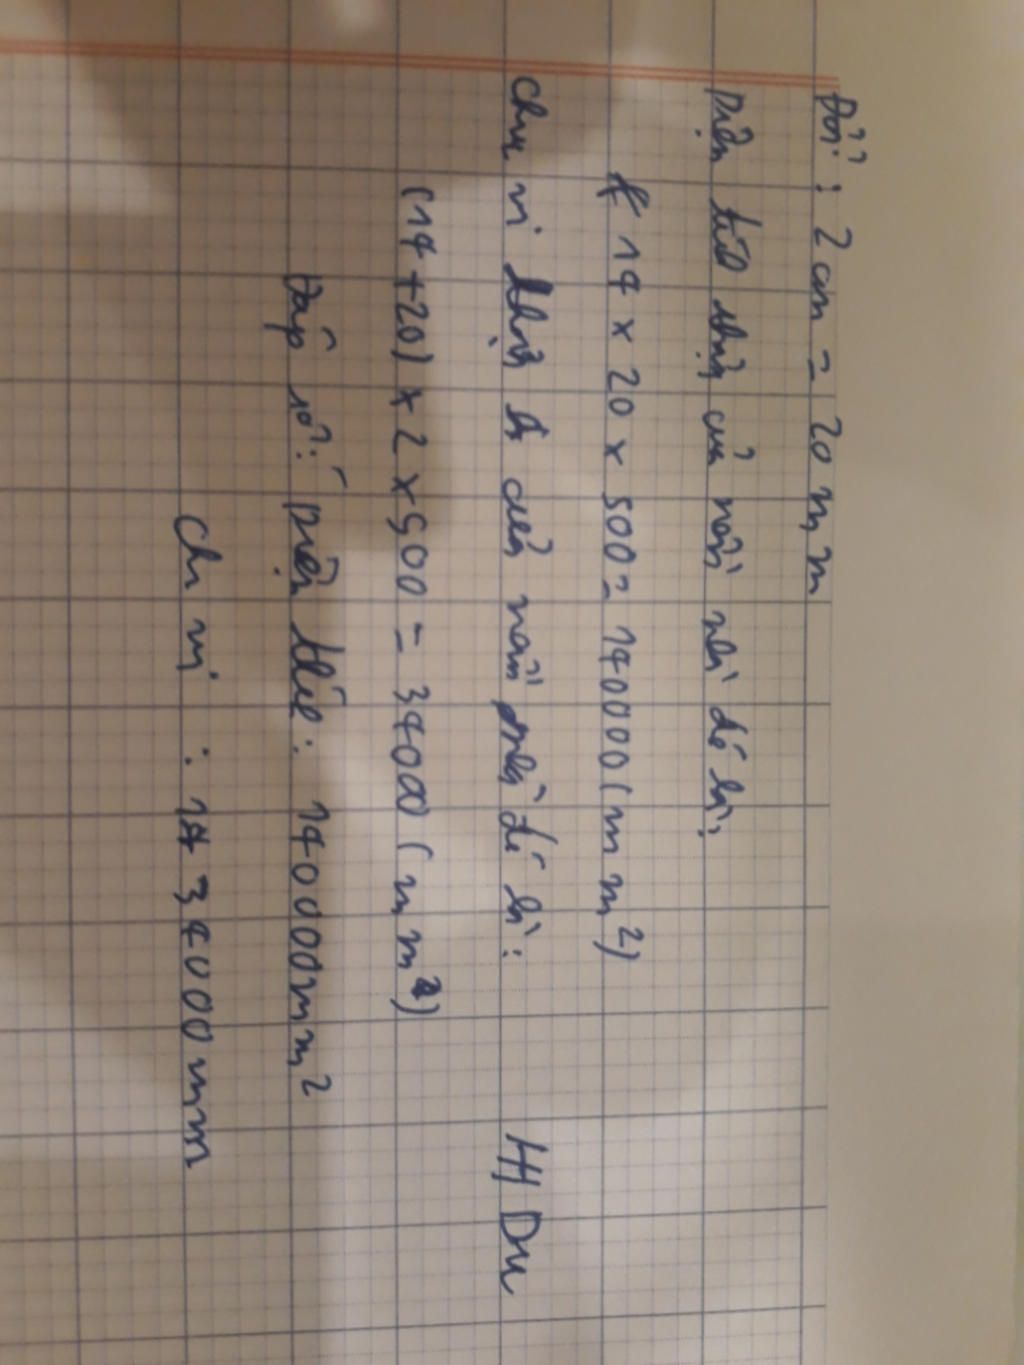 Đổi: 2 cm = 20 mm
Diện tích thật của mảnh đất là:
14 x 20 x 500 = 140000 (mm²)
Chu vi thật của mảnh đất là:
(14 + 20) x 2 x 500 = 34000 (mm²)
Đáp số: Diện tích: 140000mm²
Chu vi: 34000mm
HDu